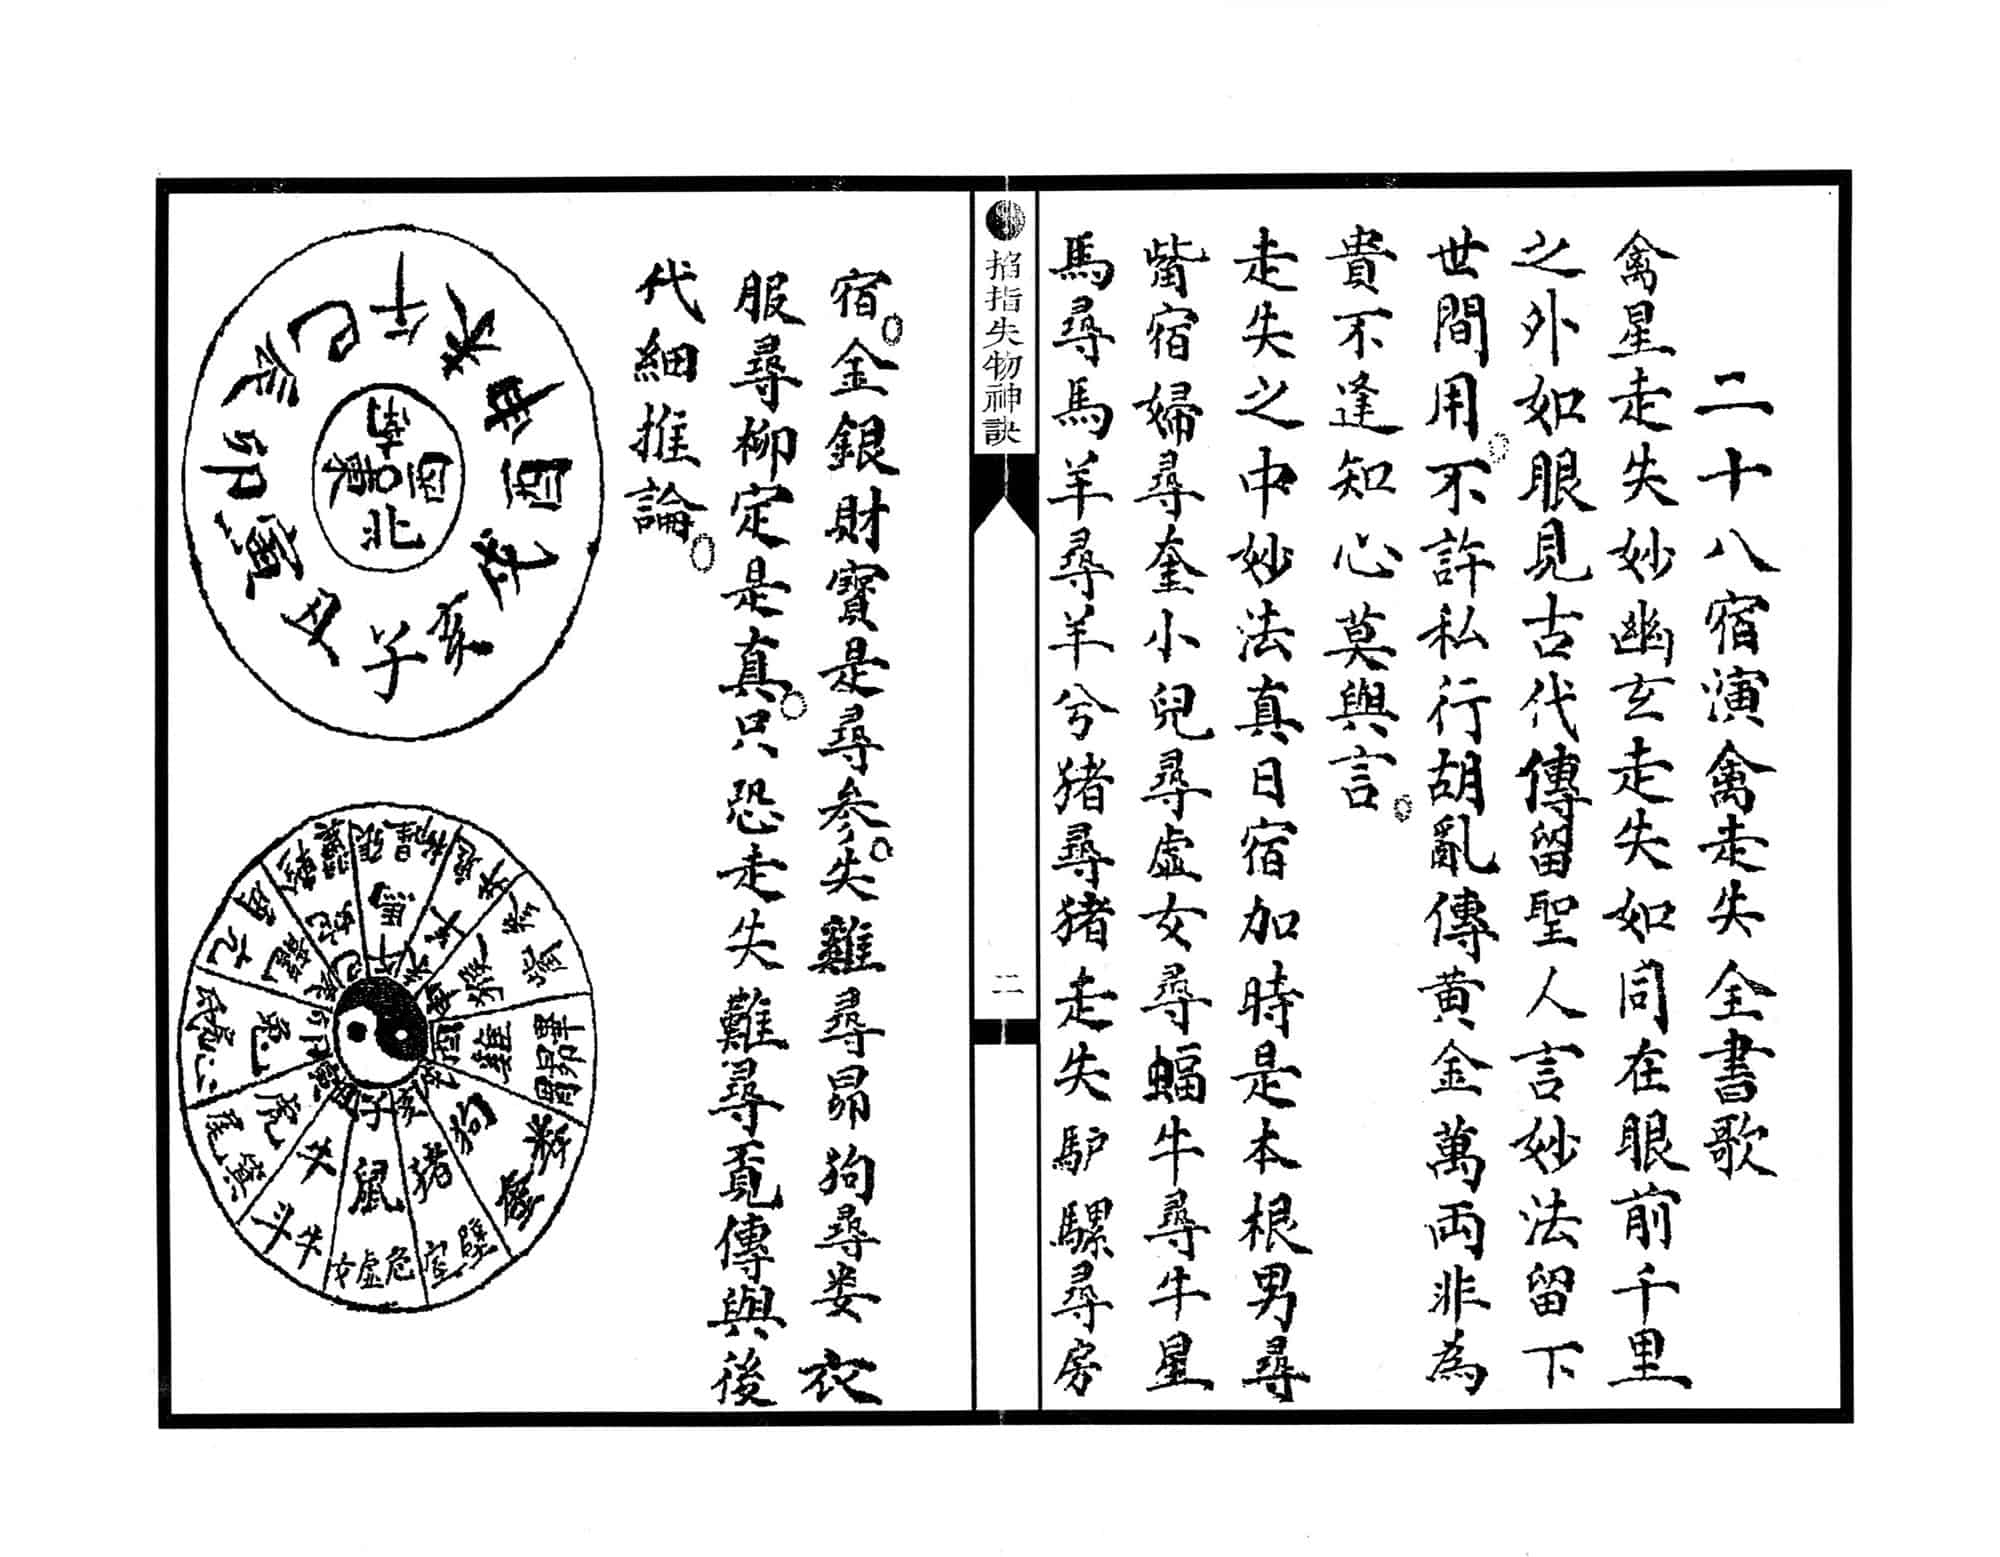 二十八宿演禽走失全書歌
禽星走失妙幽玄走失如同在眼前千里
之外如眼見古代傳留聖人言妙法留下
世間用不許私行胡亂傳黄金萬両非為
貴不逢知心莫與言
走失之中妙法真日宿加時是本根男尋
觜宿婦尋奎小兒尋虛女尋蝠牛尋牛星
馬尋馬羊尋羊兮猪尋猪走失馿騾尋房
掐指失物神訣
二
宿金銀財寳是尋參失雞尋昴狗尋娄衣
服尋柳定是真只恐走失難尋覔傳與後
代細推論
午
未
申
酉
戌
亥
子
丑
寅
卯
辰
巳
南
西
北
東
馬
羊
猴
雞
狗
猪
鼠
牛
虎
兔
龍
蛇
子
午
未
申
酉
戌
亥
寅
卯
辰
巳
柳
星
張
鬼
井
參
觜
畢
昴
胃
婁
奎
壁
室
危
虛
女
牛
斗
箕
尾
心
房
氐
亢
角
軫
翼